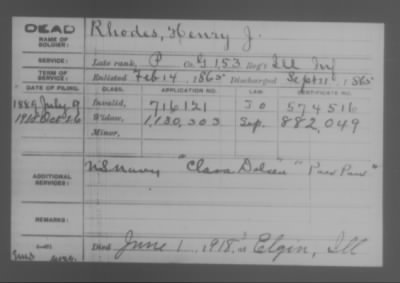 DEAD Rhodes, Henry J.
NAME OF SOLDIER:
SERVICE: Late rank, P Co. G 153 Reg't Ill Inf
TERM OF SERVICE: Enlisted Feb 14, 1865 Discharged Sept 21, 1865
DATE OF FILING. CLASS. APPLICATION NO. LAW. CERTIFICATE NO.
1889 July 9 Invalid, 716121 574516
1918 Oct 26 Widow, 1,130,303 882,049
Minor,
ADDITIONAL SERVICES: US Navy "Clara Dolsen" "Paw Paw"
REMARKS:
Died June 1, 1918, at Elgin, Ill